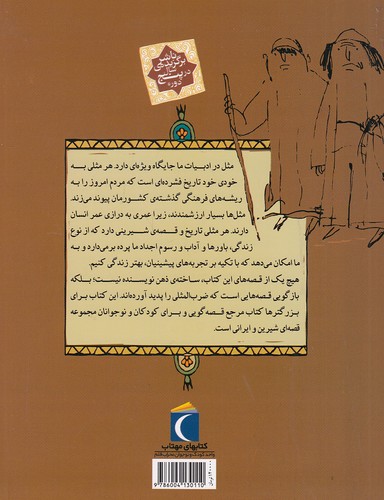 ناشر
برگزیده‌ی
در پنج
دوره
مثل در ادبیات ما جایگاه ویژه‌ای دارد. هر مثلی به
خودی خود تاریخ فشرده‌ای است که مردم امروز را به
ریشه‌های فرهنگی گذشته‌ی کشورمان پیوند می‌زند.
مثل‌ها بسیار ارزشمندند، زیرا عمری به درازی عمر انسان
دارند. هر مثلی تاریخ و قصه‌ی شیرینی دارد که از نوع
زندگی، باورها و آداب و رسوم اجداد ما پرده برمی‌دارد و به
ما امکان می‌دهد که با تکیه بر تجربه‌های پیشینیان، بهتر زندگی کنیم.
هیچ یک از قصه‌های این کتاب، ساخته‌ی ذهن نویسنده نیست؛ بلکه
بازگویی قصه‌هایی است که ضرب‌المثلی را پدید آورده‌اند. این کتاب برای
بزرگترها کتاب مرجع قصه‌گویی و برای کودکان و نوجوانان مجموعه
قصه‌ای شیرین و ایرانی است.
کتابهای مهتاب
9 786004 130110